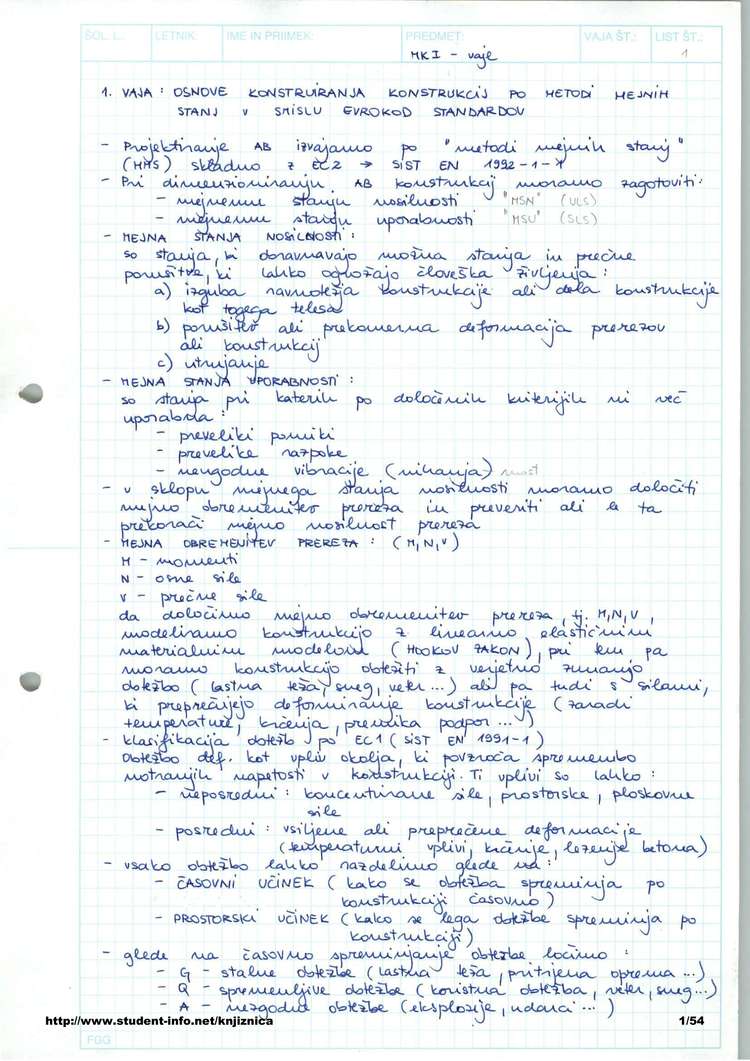 ŠOL. L.: LETNIK: IME IN PRIIMEK: PREDMET: VAJA ŠT.: LIST ŠT.:
MK I - vaje 1
1. VAJA : OSNOVE KONSTRUIRANJA KONSTRUKCIJ PO METODI MEJNIH
STANJ V SMISLU EVROKOD STANDARDOV
- Projektiranje AB izvajamo po "metodi mejnih stanj"
(MMS) skladno z EC2 → SIST EN 1992-1-1
- Pri dimenzioniranju AB konstrukcij moramo zagotoviti:
- mejnemu stanju nosilnosti "MSN" (ULS)
- mejnemu stanju uporabnosti "MSU" (SLS)
- MEJNA STANJA NOSILNOSTI :
so stanja, ki doravnavajo možna stanja in prečne
porušitve, ki lahko ogrožajo človeška življenja :
a) izguba ravnotežja konstrukcije ali dela konstrukcije
kot togega telesa
b) porušitev ali prekomerna deformacija prerezov
ali konstrukcij
c) utrujanje
- MEJNA STANJA UPORABNOSTI :
so stanja pri katerih po določenih kriterijih ni več
uporabna :
- preveliki pomiki
- prevelike razpoke
- neugodne vibracije (nihanja) most
- v sklopu mejnega stanja nosilnosti moramo določiti
mejno obremenitev prereza in preveriti ali le ta
prekorači mejno nosilnost prereza
- MEJNA OBREMENITEV PREREZA : (M,N,V)
M - momenti
N - osne sile
V - prečne sile
da določimo mejno obremenitev prereza, tj. M,N,V,
modeliramo konstrukcijo z linearno elastičnim
materialnim modelom (HOOKOV ZAKON), pri tem pa
moramo konstrukcijo obtežiti z verjetno zunanjo
obtežbo (lastna teža, sneg, veter ...) ali pa tudi s silami,
ki preprečujejo deformiranje konstrukcije (zaradi
temperature, krčenja, premika podpor ...)
- klasifikacija obtežb po EC1 (SIST EN 1991-1)
Obtežbo def. kot vpliv okolja, ki povzroča spremembo
notranjih napetosti v konstrukciji. Ti vplivi so lahko :
- neposredni : koncentrirane sile, prostorske, ploskovne
sile
- posredni : vsiljene ali preprečene deformacije
(temperaturni vplivi, krčenje, lezenje betona)
- vsako obtežbo lahko razdelimo glede na :
- ČASOVNI UČINEK (kako se obtežba spreminja po
konstrukciji časovno)
- PROSTORSKI UČINEK (kako se lega obtežbe spreminja po
konstrukciji)
- glede na časovno spreminjanje obtežbe ločimo :
- G - stalne obtežbe (lastna teža, pritrjena oprema ...)
- Q - spremenljive obtežbe (koristna obtežba, veter, sneg...)
- A - nezgodne obtežbe (eksplozije, udarci ...)
http://www.student-info.net/knjiznica 1/54
FGG